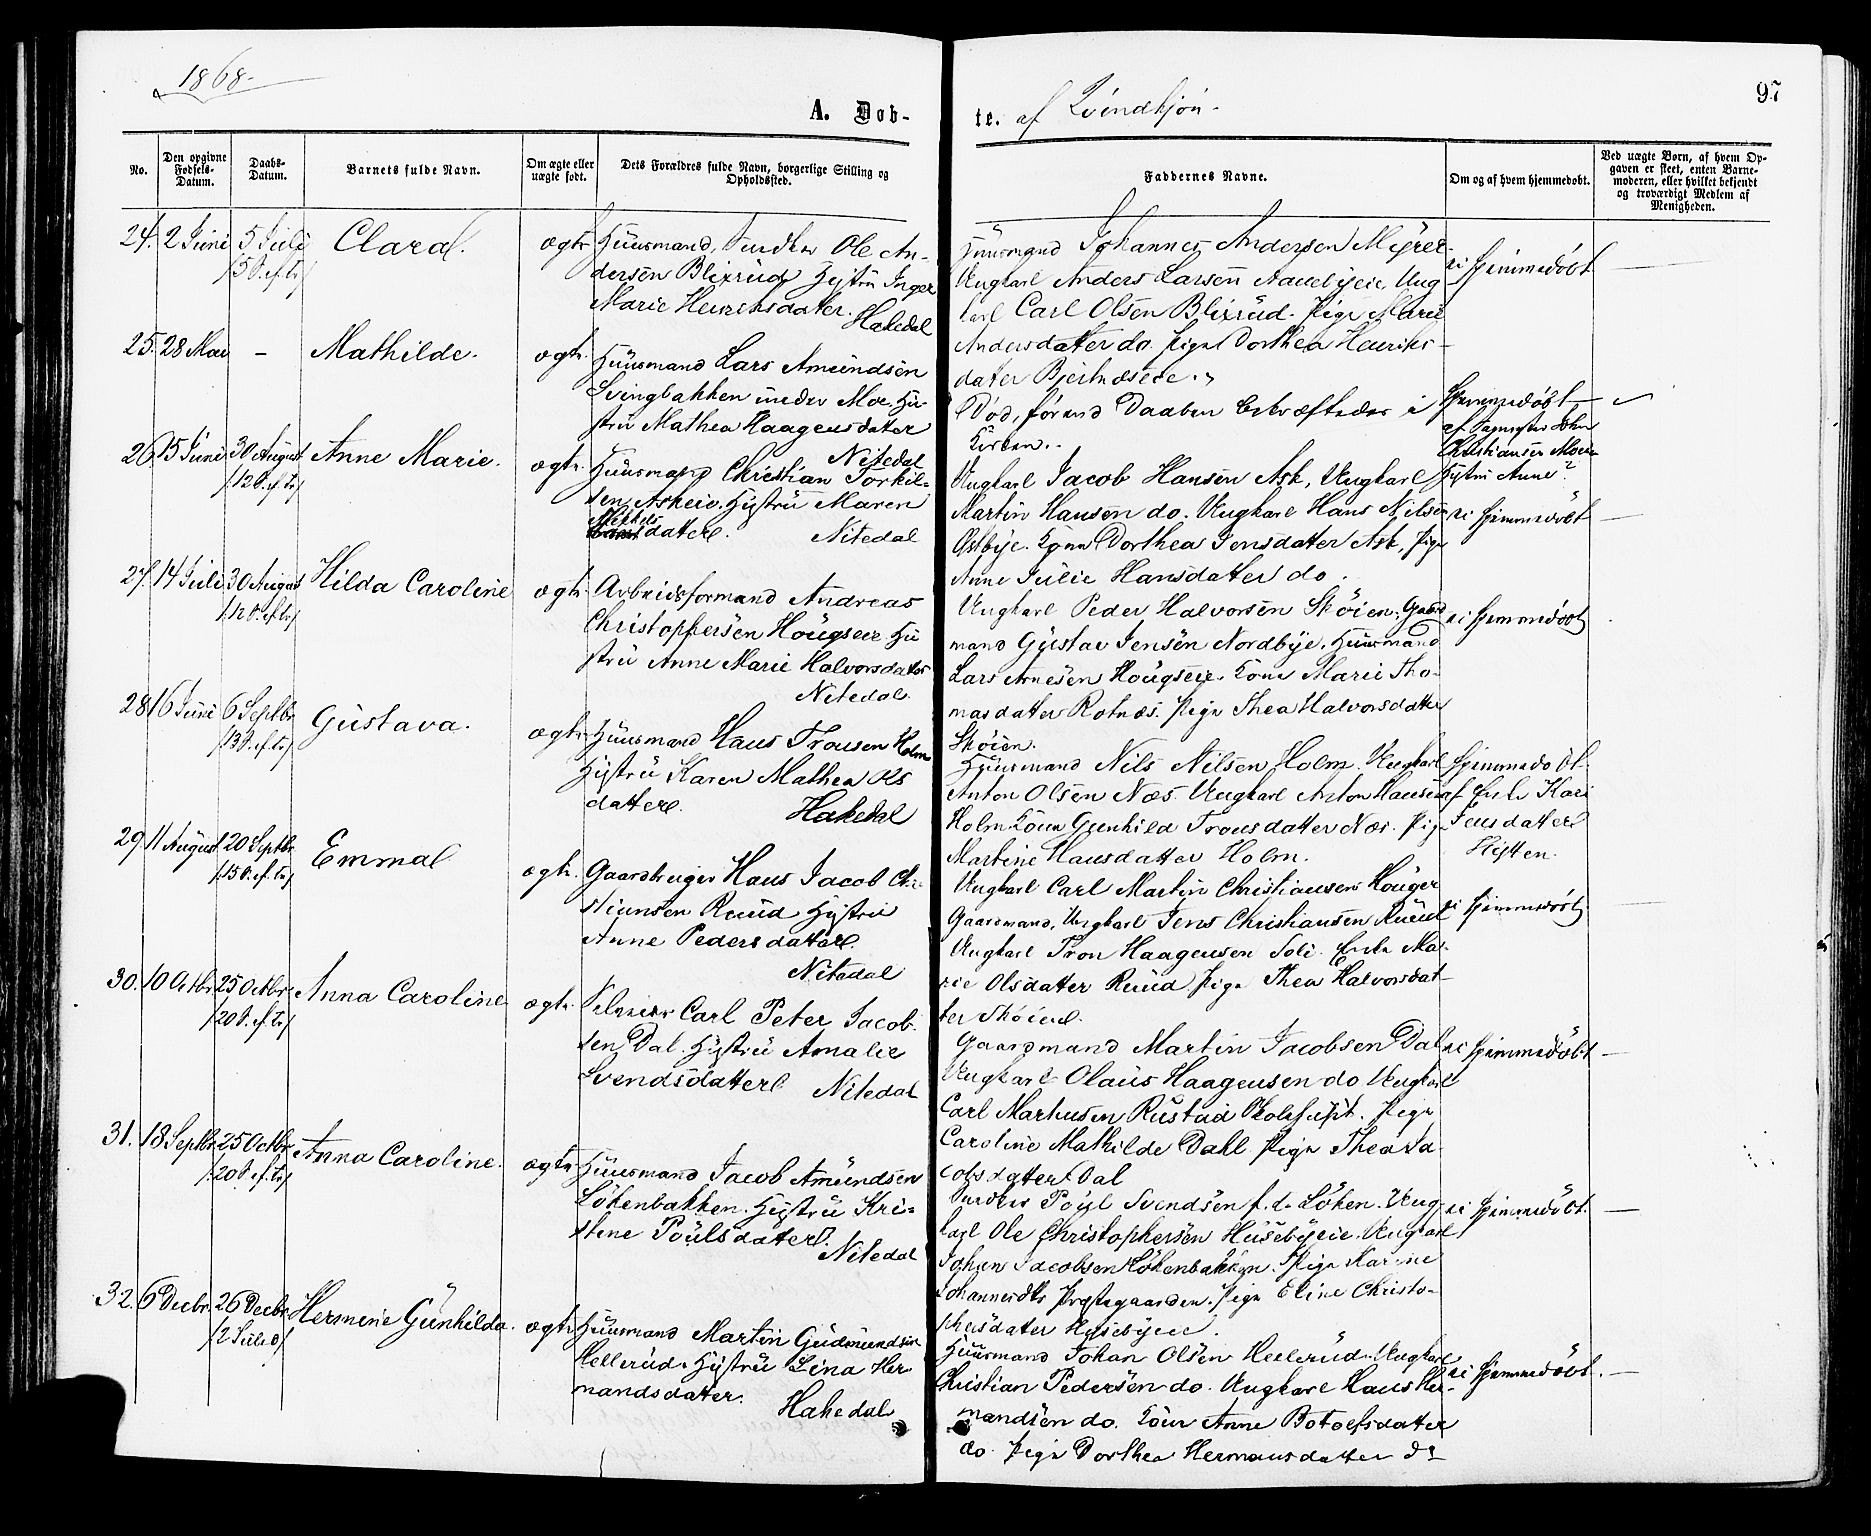 1868.
97
A. Døb-
te. af Qvindkjøn.
No.
Den opgivne Fødsels-Datum.
Daabs-Datum.
Barnets fulde Navn.
Om ægte eller uægte født.
Dets Forældres fulde Navn, borgerlige Stilling og Opholdssted.
Faddernes Navne.
Om og af hvem hjemmedøbt.
Ved uægte Børn, af hvem Op-
gaven er skeet, enten Barne-
moderen, eller hvilket bekjendt
og troværdigt Medlem af
Menigheden.
24. 2 Juni 5 Juli
/5 S. ef. tr/
Clara.
ægte
Huusmand, Snedker Ole An-
dersen Blixrud Hustru Inger
Marie Henriksdatter.
Hakedal
Huusmand Johannes Andersen Myrer
Ungkarl Anders Larsen Aanebyeie, Ung
karl Carl Olsen Blixrud. Pige Marie
Andersdatter do. Pige Dorthea Henriks-
dater Bjertnæseie.
ei hjemmedøbt
25. 28 Mai -
Mathilde.
ægte.
Huusmand Lars Amundsen
Svingbakken under Moe. Hu-
stru Mathea Haagensdater
Nitedal
Død, førend Daaben bekræftedes i
Kirken.
Hjemmedøbt
af John
Christiansen Moe
Hustru Anne?
26 15 Juni 30 August
/12 S. ef. tr/
Anne Marie.
ægte.
Huusmand Christian Torkil-
sen Askeie. Hustru Maren
Mikkels
datter.
Nitedal
Ungkarl Jacob Hansen Ask, Ungkarl
Martin Hansen do. Ungkarl Hans Nilsen
Østbye. Kone Dorthea Jensdatter Ask, Pige
Anne Julie Hansdatter do.
ei hjemmedøbt
27. 14 Juli 30 August
/12 S. ef. tr/
Hilda Caroline
ægte.
Arbeidsformand Andreas
Christophersen Høugseie Hu
stru Anne Marie Halvorsdatter
Nitedal.
Ungkarl Peder Halvorsen Skøien. Gaard
mand Gustav Jensen Nordbye. Huusmand
Lars Arnesen Hougseie. Kone Marie Tho-
masdatter Rotnes. Pige Thea Halvorsdatter
Skøien.
ei hjemmedøbt
28 16 Juni 6 Septbr
/13 S. ef. tr/
Gustava.
ægte
Huusmand Hans Tronsen Holm
Hustru Karen Mathea Ols
datter.
Hakedal
Huusmand Nils Nilsen Holm. Ungkarl
Anton Olsen Næs. Ungkarl Anton Hansen
Holm. Kone Gunhild Tronsdatter Næs. Pige
Martine Hansdatter Holm.
hjemmedøbt
af Enke Kari
Jensdatter
29 11 August 20 Septbr
/15 S. ef. tr/
Emma
ægte.
Gaardbruger Hans Jacob Chri-
stiansen Ruud Hustru
Anne Pedersdatter.
Nitedal
Ungkarl Carl Martin Christiansen Høuger
Gaardmand, Ungkarl Jens Christiansen Ruud
Ungkarl Tron Haagensen Soli. Enke Ma-
rie Olsdatter Ruud Pige Thea Halvorsdat-
ter Skøien.
ei hjemmedøbt
30. 10 Octbr 25 Octbr
/20 S. ef. tr/
Anna Caroline
ægte.
Selveier Carl Peter Jacob
sen Dal. Hustru Amalie
Svendsdatter. Nitedal
Gaardmand Martin Jacobsen Dal
Ungkarl Olaus Haagensen do Ungkarl
Carl Markusen Rustad. Pige
Caroline Mathilde Dahl Pige Thea Ja-
cobsdatter Dal
ei hjemmedøbt
31. 18 Septbr 25 Octbr
/20 S. ef. tr/
Anna Caroline.
ægte
Huusmand Jacob Amundsen
Løkenbakken. Hustru Kri-
stine Poulsdatter.
Nitedal
Snedker Poul Svendsen f. d. Løken. Ung-
karl Ole Christophersen Husebyeie. Ungkarl
Johan Jacobsen Løkenbakken. Pige Karine
Johannesdtr Præstegaarden. Pige Eline Christo-
phersdater Husebyeie.
ei hjemmedøbt.
32. 6 Decbr 26 Decbr
/2 Juled/
Hermine Gunhilda.
ægte
Huusmand Martin Gudmundsen
Hellerud. Hustru Lina Her
mandsdatter.
Hakedal
Huusmand Johan Olsen Hellerud. Ungkarl
Christian Pedersen do. Ungkarl Hans Her-
mandsen do. Kone Anne Botolfsdatter
do. Pige Dorthea Hermansdatter do
ei hjemmedøbt.